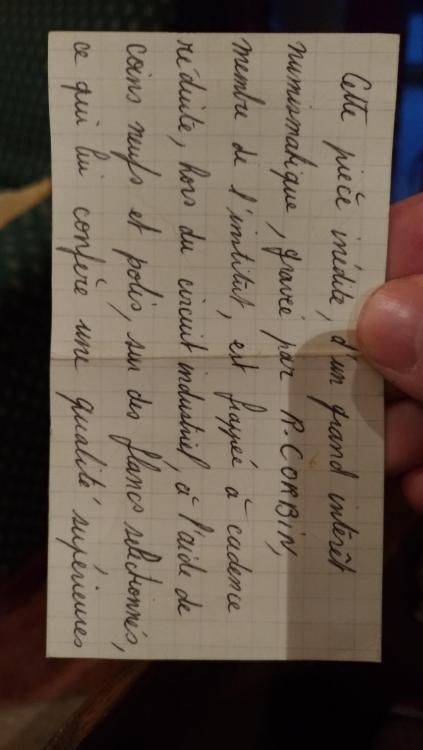 Cette pièce inédite, d'un grand intérêt
numismatique, gravée par R. CORBIN,
membre de l'institut, est frappée à cadence
réduite, hors du circuit industriel, à l'aide de
coins neufs et polis, sur des flancs selectionnés,
ce qui lui confère une qualité supérieures